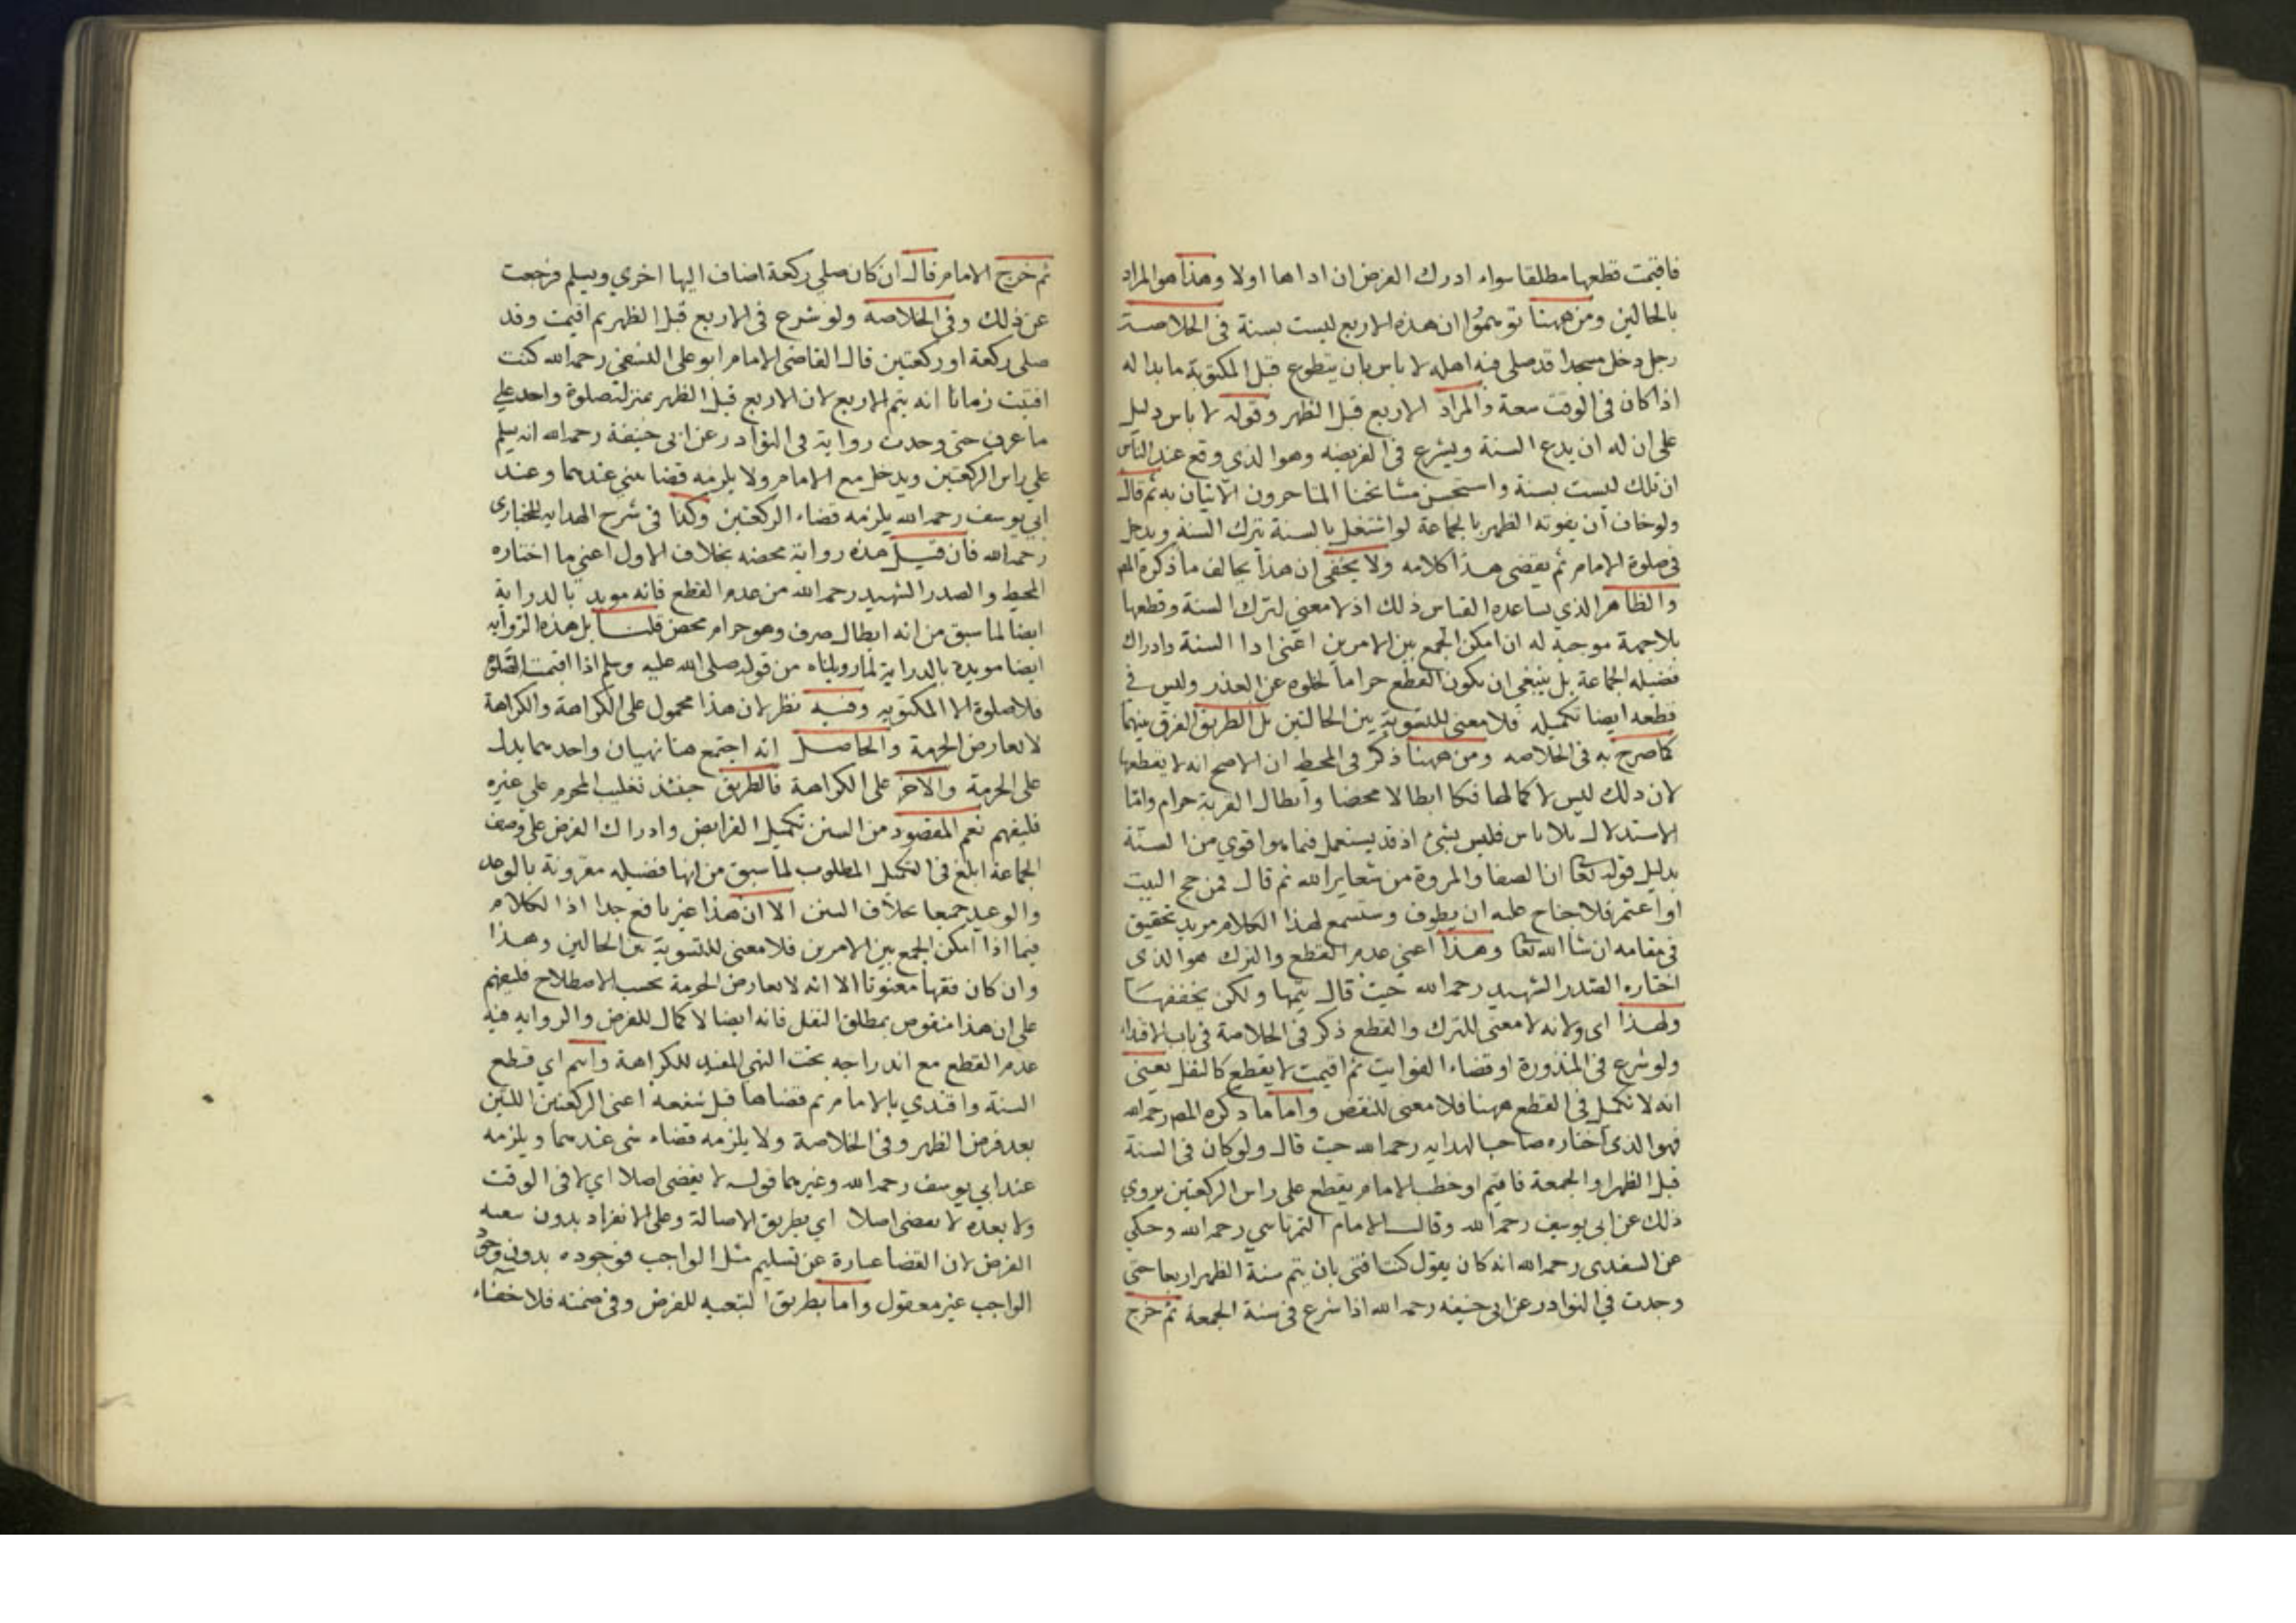 فاقيمت قطعها مطلقا سواء ادرك الفرض ان اداها اولا وهذا هو المراد
بالحالين ومن ههنا توهموا ان هذه الاربع ليست بسنة في الخلاصة
رجل دخل مسجدا قد صلى فيه اهله لا باس بان يتطوع قبل المكتوبة ما بدا له
اذا كان في الوقت سعة والمراد الاربع قبل الظهر وقوله لا باس دليل
على ان له ان يدع السنة ويشرع في الفريضه وهو الذي وقع عند الناس
ان تلك ليست بسنة واستحسن مشائخنا المتاخرون الاتيان به ثم قال
ولو خاف ان يفوته الظهر بالجماعة لو اشتغل بالسنة يترك السنة ويدخل
في صلوة الامام ثم يقضي هذا كلامه ولا يخفى ان هذا يخالف ما ذكره المص
والظاهر الذي يساعده القياس ذلك اذ لا معنى لترك السنة وقطعها
بلا جهة موجبة له ان امكن الجمع بين الامرين اعني ادا السنة وادراك
فضيله الجماعة بل ينبغي ان يكون القطع حراما لخلوه عن العذر وليس في
قطعه ايضا تكميله فلا معنى للتسوية بين الحالتين بل الطريق الفرق بينهما
كما صرح به في الخلاصه ومن ههنا ذكر في المحيط ان الاصح انه لا يقطعها
لان ذلك ليس لاكمالها فكا ابطالا محضا وابطال القربة حرام واما
الاستدلال بلا باس فليس بشئ اذ قد يستعمل فيما هو اقوي من السنة
بدليل قوله تعا ان الصفا والمروة من شعاير الله ثم قال فمن حج البيت
او اعتمر فلا جناح عليه ان يطوف وستسمع لهذا الكلام مزيد تحقيق
في مقامه ان شا الله تعا وهذا اعني عدم القطع والترك هو الذي
اختاره الصدر الشهيد رحمه الله حيث قال يتمها ولكن يخففها
ولهذا اى ولانه لا معنى للترك والقطع ذكر في الخلاصة في باب الاقتداء
ولو شرع في المنذورة او قضاء الفوايت ثم اقيمت لا يقطع كالنفل يعني
انه لا تكميل في القطع ههنا فلا معنى للنقض واما ما ذكره المص رحمه الله
فهو الذي اختاره صاحب الهدايه رحمه الله حيث قال ولو كان في السنة
قبل الظهر او الجمعة فاقيم او خطب الامام يقطع على راس الركعتين يروي
ذلك عن ابي يوسف رحمه الله وقال الامام التمرتاسي رحمه الله وحكي
عن السغدي رحمه الله انه كان يقول كنت افتى بان يتم سنة الظهر اربعا حتى
وجدت في النوادر عن ابي حنيفه رحمه الله اذا شرع في سنة الجمعة ثم خرج
ثم خرج الامام قال ان كان صلى ركعة اضاف اليها اخري ويسلم فرجعت
عن ذلك وفي الخلاصه ولو شرع في الاربع قبل الظهر ثم اقيمت وقد
صلى ركعة او ركعتين قال القاضي الامام ابو على النسفي رحمه الله كنت
افتيت زمانا انه يتم الاربع لان الاربع قبل الظهر بمنزلة صلوة واحدة على
ما عرف حتى وجدت رواية في النوادر عن ابي حنيفة رحمه الله انه يسلم
علي راس الركعتين ويدخل مع الامام ولا يلزمه قضا شئ عندهما وعند
ابي يوسف رحمه الله يلزمه قضاء الركعتين وكذا في شرح الهدايه للخبازى
رحمه الله فان قيل هذه رواية محضه بخلاف الاول اعني ما اختاره
المحيط والصدر الشهيد رحمه الله من عدم القطع فانه مويد بالدراية
ايضا لما سبق من انه ابطال صرف وهو حرام محض قلنا بل هذه الروايه
ايضا مويدة بالدراية لما رويناه من قوله صلى الله عليه وسلم اذا اقيمت الصلوة
فلا صلوة الا المكتوبه وفيه نظر لان هذا محمول على الكراهة والكراهة
لا تعارض الحرمة والحاصل انه اجتمع هنا نهيان واحدهما يدل
على الحرمة والآخر على الكراهة فالطريق حينئذ تغليب المحرم على غيره
فليفهم نعم المقصود من السنن تكميل الفرايض وادراك الفرض على وصف
الجماعة ابلغ في التكميل المطلوب لما سبق من انها فضيله مقرونة بالوعد
والوعيد جميعا بخلاف السنن الا ان هذا غير نافع جدا اذ الكلام
فيما اذا امكن الجمع بين الامرين فلا معنى للتسوية بين الحالين وهذا
وان كان فقها معنونا الا انه لا يعارض الحرمة بحسب الاصطلاح فليفهم
على ان هذا منقوض بمطلق النفل فانه ايضا لاكمال للفرض والروايه فيه
عدم القطع مع اندراجه تحت النهي المفيد للكراهة واسم اي قطع
السنة واقتدي بالامام ثم قضاها قبل شفعه اعني الركعتين اللتين
بعد فرض الظهر وفي الخلاصة ولا يلزمه قضاء شي عندهما ويلزمه
عند ابي يوسف رحمه الله وغيرهما قوله لا يقضى اصلا اي لا في الوقت
ولا بعده لا يقضى اصلا اي بطريق الاصالة وعلى الانفراد بدون تبعيه
الفرض لان القضا عبارة عن تسليم مثل الواجب فوجوده بدون وجود
الواجب غير معقول واما بطريق التبعيه للفرض وفي ضمنه فلا خفاء